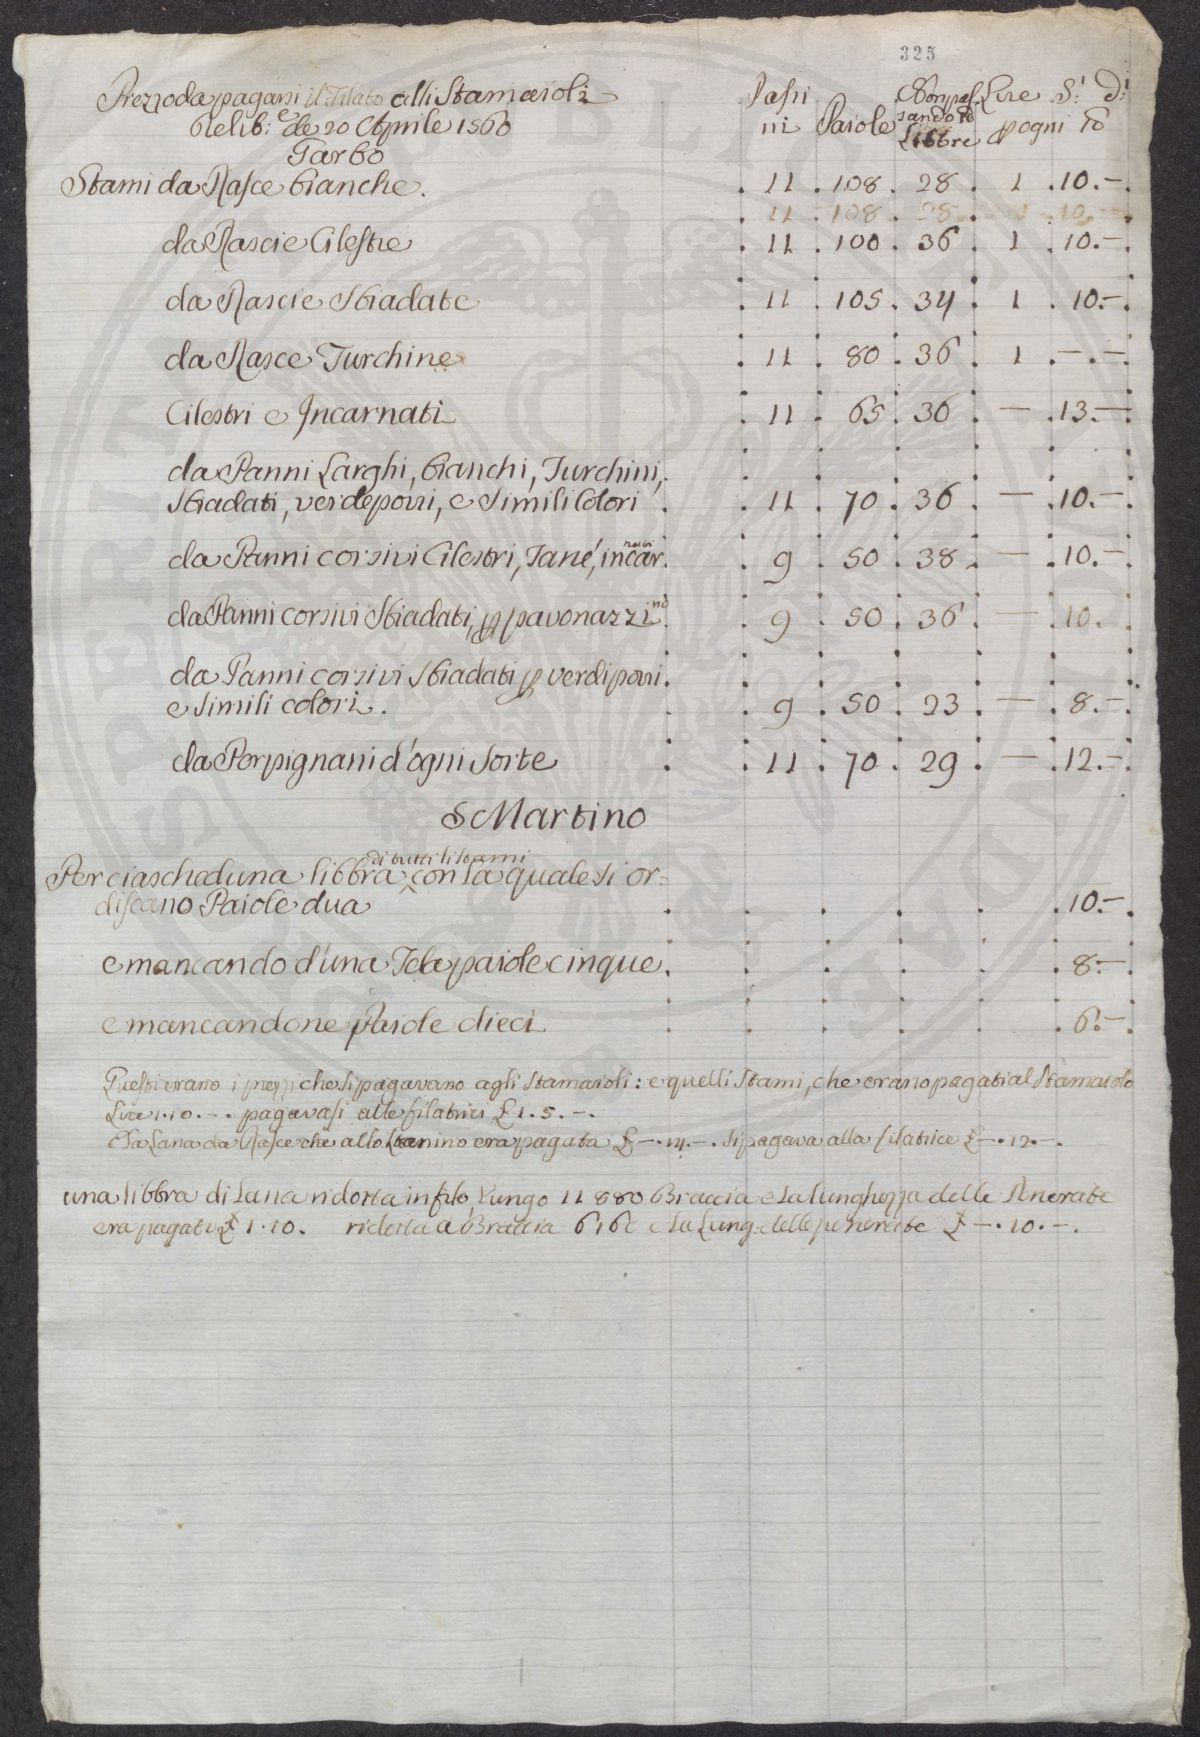 325
Prezzo da pagarsi il Filato alli Stamaioli
Delib:e de 20 Aprile 1560
Garbo
Passi Lire S: d:
ni Paiole sando lb p ogni lb
Libbre
Stami da Rasce bianche. 11 . 108 . 28 1 .10.-
11 108 28 1 10.-
da Rascie Cilestre 11 . 100 . 36 . 1 .10.-
da Rascie Sbiadate 11 . 105 . 34 . 1 . 10.-
da Rasce Turchine 11 . 80 . 36 . 1 . - . -
Cilestri e Incarnati 11 . 65 . 36 - .13.-
da Panni Larghi, bianchi, Turchini,
Sbiadati, verdeporri, e Simili Colori . 11 . 70 . 36 . - .10.-
da Panni corsivi Cilestri, Tané, incarnati . 9 . 50 . 38 . - .10.-
da Panni corsivi Sbiadati, p pavonazzi no . 9 . 50 . 36 . - .10.
da Panni corsivi Sbiadati p verdiporri.
e simili colori. 9 . 50 . 23 . - . 8.-
da Perpignani d'ogni sorte . 11 . 70 . 29 . - .12.-
S Martino
di tutti li stami
Per ciascheduna libbra ^ con la quale si or=
discano Paiole dua .10.-
e mancando d'una Tela paiole cinque . 8.-
e mancandone Paiole dieci . 6.-
Questi erano i prezzi che si pagavano agli Stamaioli: e quelli Stami, che erano pagati al Stamaiolo
Lire 1.10.-. pagavasi alle filatrici £ 1.5.-.
E la Lana da Rasce che allo era pagata £ -.14.-. si pagava alla filatrice £ -.12.-.
una libbra di Lana ridotta in filo Lungo 11880 Braccia e la lunghezza delle Penerate
era pagata £ 1.10. ridotta a Braccia 6160 e la Lung: delle penerate £ -.10.-.